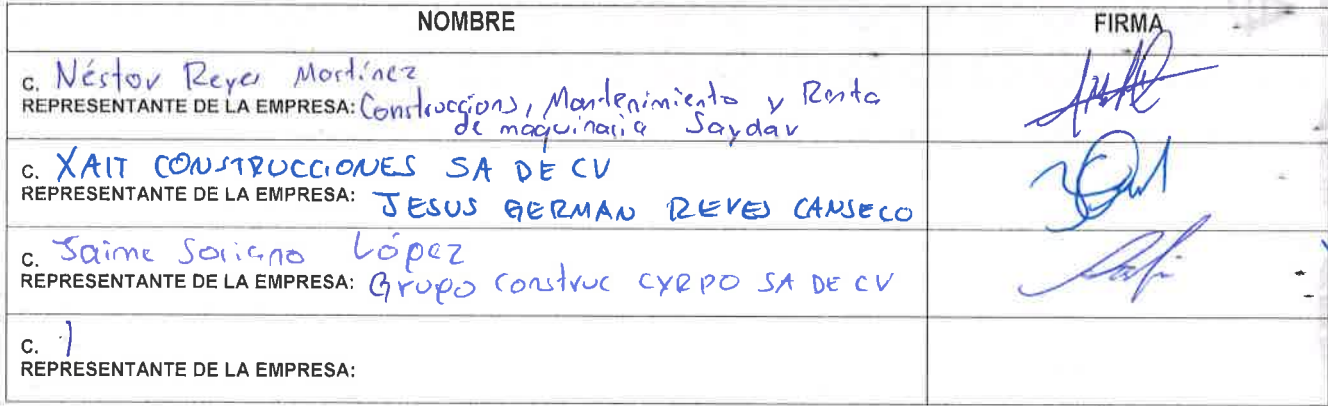 NOMBRE FIRMA
C. Néstor Reyes Martínez
REPRESENTANTE DE LA EMPRESA: Construccions, Mantenimiento y Renta
de maquinaria Saydav
C. XAIT CONSTRUCCIONES SA DE CV
REPRESENTANTE DE LA EMPRESA: JESUS GERMAN REYES CANSECO
C. Jaime Soriano López
REPRESENTANTE DE LA EMPRESA: Grupo Construc CYRPO SA DE CV
C.
REPRESENTANTE DE LA EMPRESA: